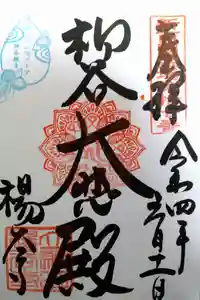 奉拝
令和四年六月十一日
柳谷
大悲殿
楊谷寺